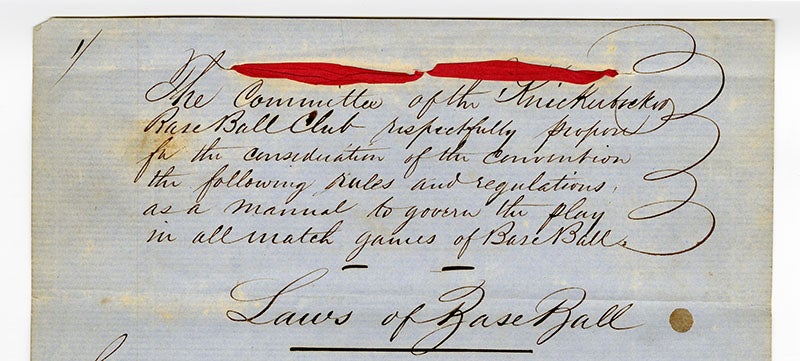 1/
The Committee of the Knickerbocker
Base Ball Club respectfully propose
for the consideration of the convention
the following rules and regulations,
as a manual to govern the play
in all match games of Base Ball.
Laws of Base Ball